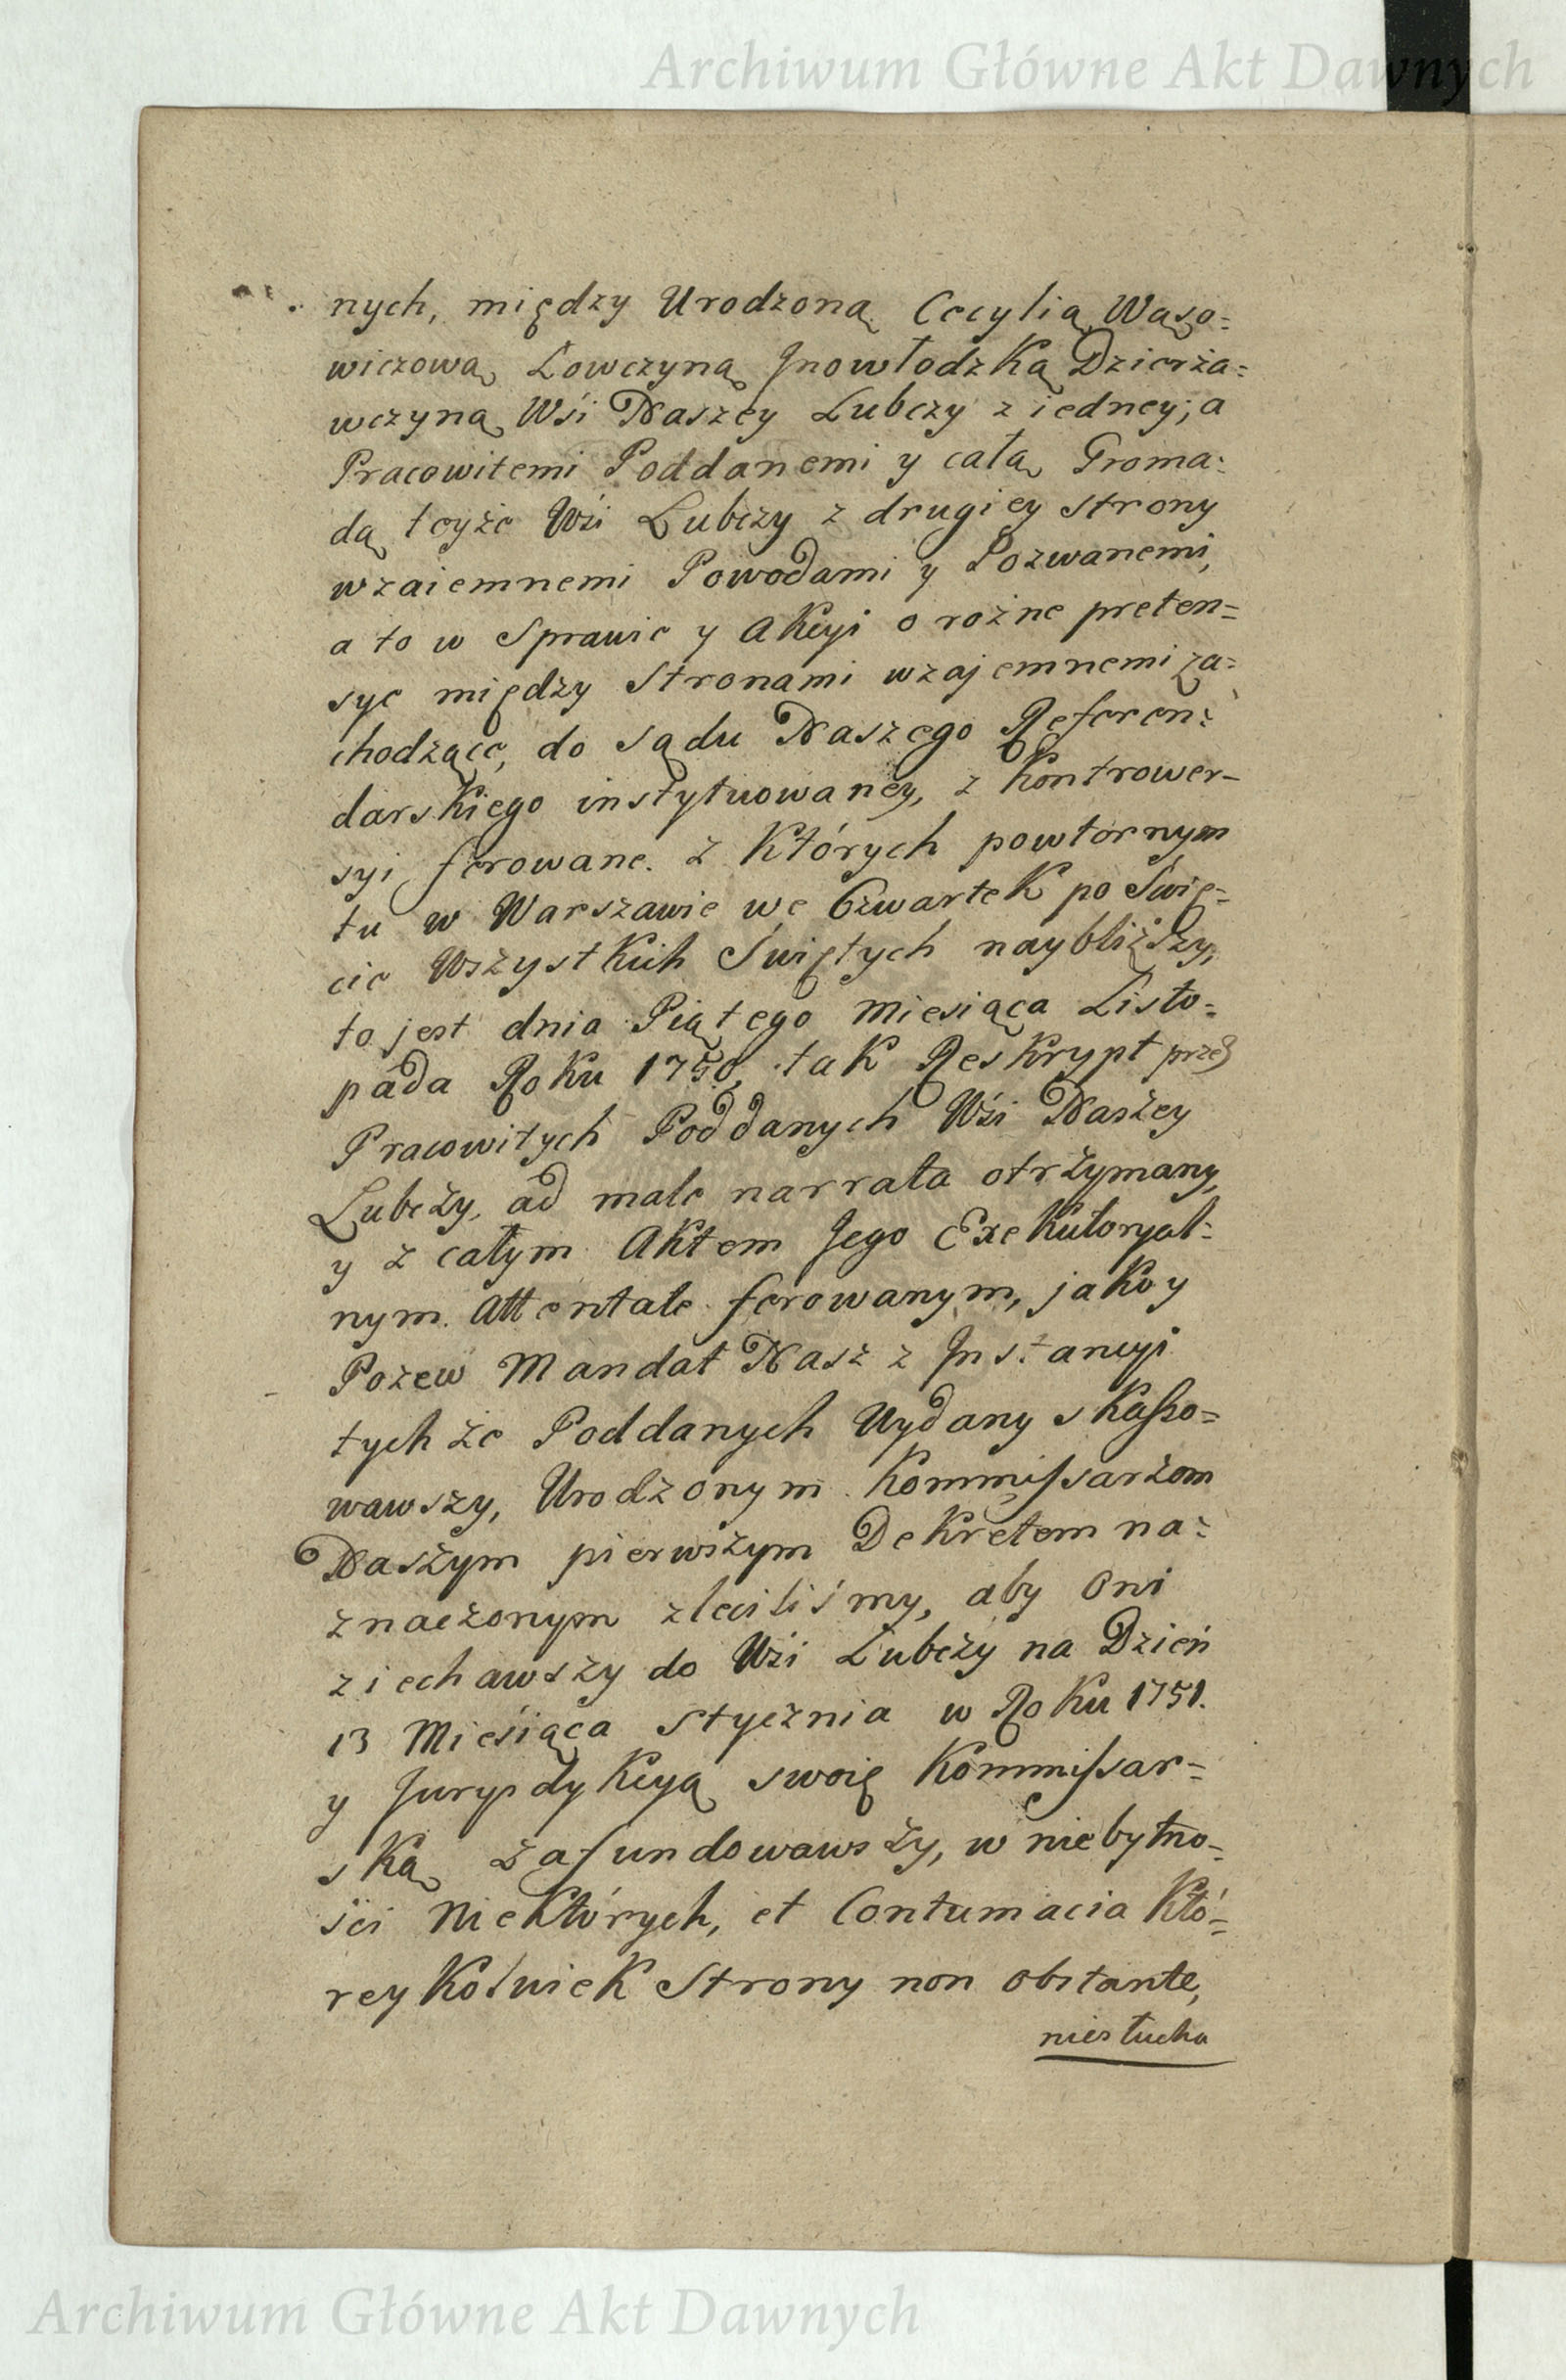 Archiwum Główne Akt Dawnych
nych, między Urodzoną Cecylią Wąso=
wiczową Łowczyną Jnowłodzką Dzierża=
wczyną Wśi Naszey Lubczy z iedney; a
Pracowitemi Poddanemi y całą Groma=
dą teyże Wśi Lubczy z drugiey strony
wzaiemnemi Powodami y Pozwanemi,
a to w Sprawie y Akcyi o rożne preten=
sye między Stronami wzajemnemi za=
chodzące, do sądu Naszego Referen=
darskiego instytuowaney, z Kontrower=
syi ferowane. Z Których powtornym
tu w Warszawie we Czwartek po Świę=
cie Wszystkich Świętych naybliższy,
to jest dnia Piątego Miesiąca Listo=
pada Roku 1750, tak Reskrypt przez
Pracowitych Poddanych Wśi Naszey
Lubczy, ad male narrata otrzymany,
y z całym Aktem Jego Exekutoryal=
nym Attentate ferowanym, jako y
Pozew Mandat Nasz z Jnstancyi
tychże Poddanych Wydany skasso=
wawszy, Urodzonym Kommissarzom
Naszym pierwszym Dekretem na=
znaczonym zleciliśmy, aby Oni
ziechawszy do Wśi Lubczy na Dzień
13 Miesiąca Stycznia w Roku 1751.
y Jurysdykcyą swoię Kommissar=
ską zafundowawszy, w niebytno=
ści Niektórych, et Contumacia Któ=
reykolwiek Strony non obstante,
niesłucha
Archiwum Główne Akt Dawnych